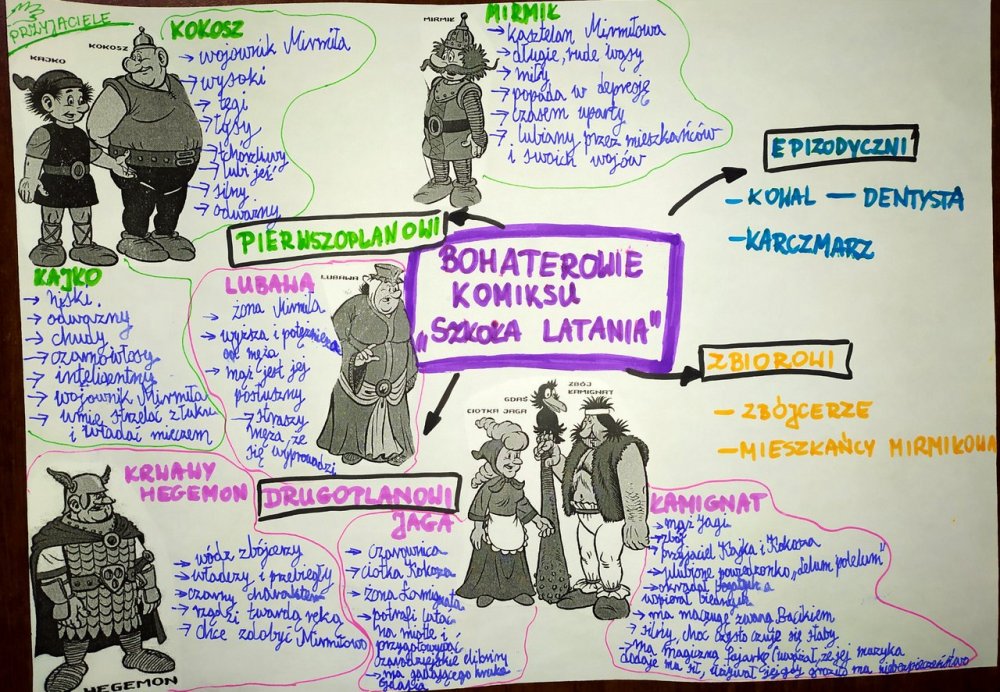 PRZYJACIELE
KOKOSZ
→ wojownik Mirmiła
→ wysoki
→ tęgi
→ łysy
→ tchórzliwy
→ lubi jeść
→ silny
→ odważny
KAJKO
KOKOSZ
MIRMIŁ
MIRMIŁ
→ kasztelan Mirmiłowa
→ długie, rude wąsy
→ miły
→ popada w depresję
→ czasem uparty
→ lubiany przez mieszkańców
i swoich wojów
EPIZODYCZNI
- KOWAL — DENTYSTA
- KARCZMARZ
PIERWSZOPLANOWI
BOHATEROWIE
KOMIKSU
„SZKOŁA LATANIA"
KAJKO
→ niski
→ odważny
→ chudy
→ czarnowłosy
→ inteligentny
→ wojownik Mirmiła
→ umie strzelać z łuku
i władać mieczem
LUBAWA
LUBAWA
żona Mirmiła
→ wyższa i potężniejsza
od męża
→ mąż jest jej
posłuszny
→ straszy
męża, że
się wyprowadzi
ZBIOROWI
- ZBÓJCERZE
- MIESZKAŃCY MIRMIŁOWA
KRWAWY
HEGEMON
→ wódz zbójcerzy
→ władczy i przebiegły
→ czarny charakter
→ rządzi twardą ręką
→ chce zdobyć Mirmiłowo
HEGEMON
DRUGOPLANOWI
JAGA
→ czarownica
→ ciotka Kokosza
→ żona Łamignata
→ potrafi latać
na miotle i
przygotowywać
czarodziejskie eliksiry
→ ma gadającego kruka
Gdasia
CIOTKA JAGA
GDAŚ
ZBÓJ
ŁAMIGNAT
ŁAMIGNAT
→ mąż Jagi
→ zbój
→ przyjaciel Kajka i Kokosza
→ ulubione powiedzonko „lelum polelum"
→ okradał bogatych a
wspierał biednych
→ ma maczugę zwaną Bacikiem
→ silny, choć często czuje się słaby
→ ma magiczną fujarkę (uważał, że jej muzyka
dodaje mu sił,